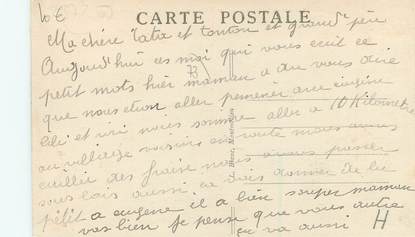 CARTE POSTALE
Ma chère Tata et tonton et grand père
Aujourd'hui ces moi qui vous ecrit ce
petit mots hier maman a du vous dire
que nous etion aller promener avec eugène
et nous somme aller a 10 Kilometre
au village voisins en route nous avons
cueillee des nous avons passer
sous bois aussi ca dois donner de l'
a eugene il a bien souper maman
vas bien Je pense que vous autre
ca va aussi H